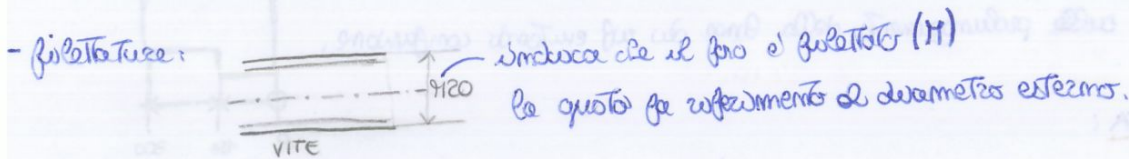 - filettature:
M20
indica che il foro è filettato (M)
la quota fa riferimento al diametro esterno.
VITE